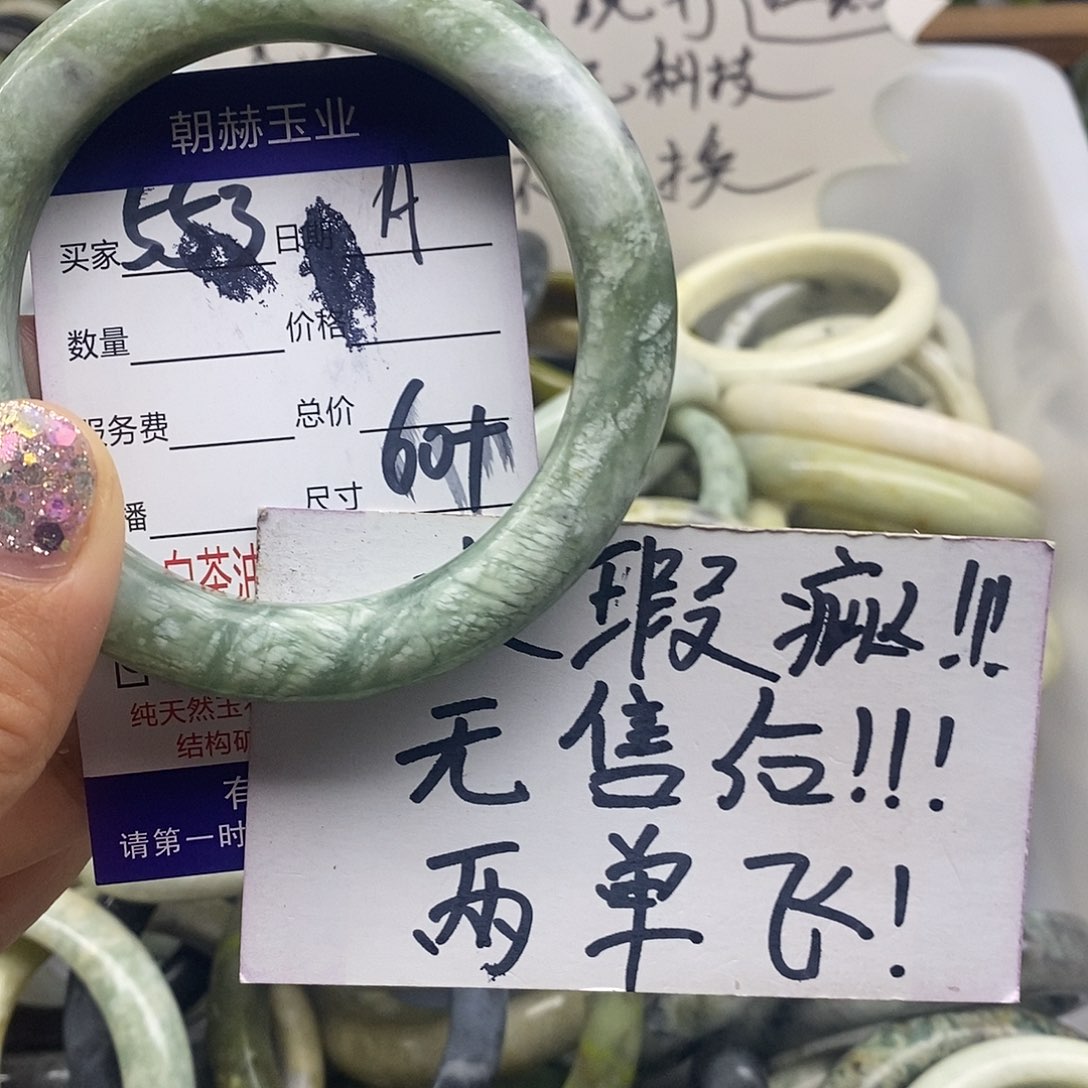 科技
换
朝赫玉业
买家 553 日期 A
数量 价格
服务费 总价
60+
尺寸
白茶油
纯天然玉
结构矿
有
请第一时
瑕疵!!!
无售后!!!
两单飞!